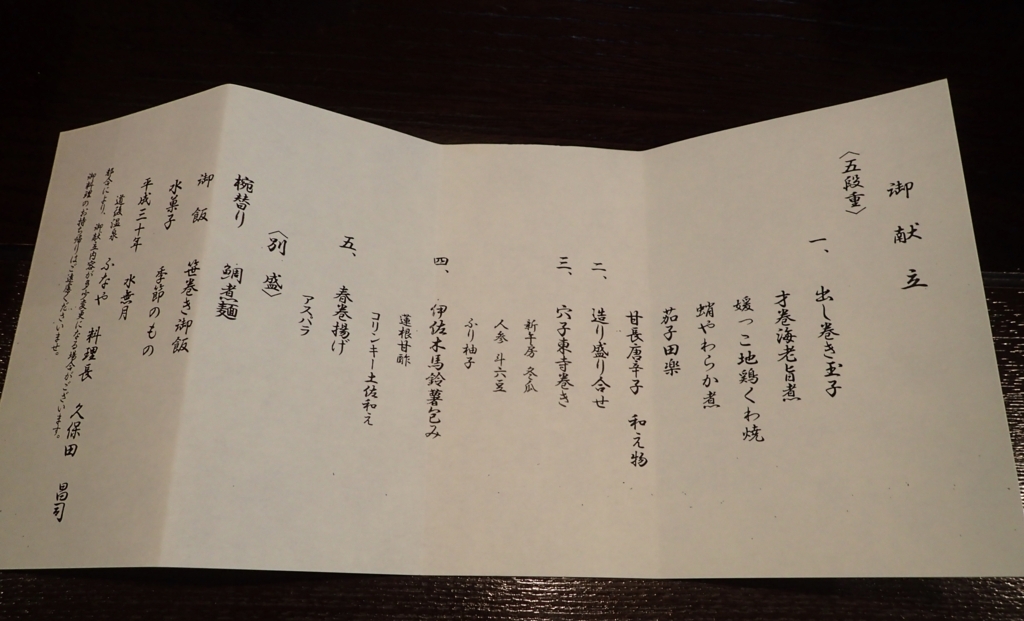 御献立
〈五段重〉
一、出し巻き玉子
才巻海老旨煮
媛っこ地鶏くわ焼
蛸やわらか煮
茄子田楽
甘長唐辛子 和え物
二、造り盛り合せ
三、穴子東寺巻き
新牛房 冬瓜
人参 斗六豆
ふり柚子
四、伊佐木馬鈴薯包み
蓮根甘酢
コリンキー土佐和え
五、春巻揚げ
アスパラ
〈別盛〉
椀替り 鯛煮麺
御飯 笹巻き御飯
水菓子 季節のもの
平成三十年 水無月
道後温泉 ふなや 料理長 久保田 昌司
都合により、御献立内容が多少変更になる場合がございます。
御料理のお持ち帰りはご遠慮くださいませ。